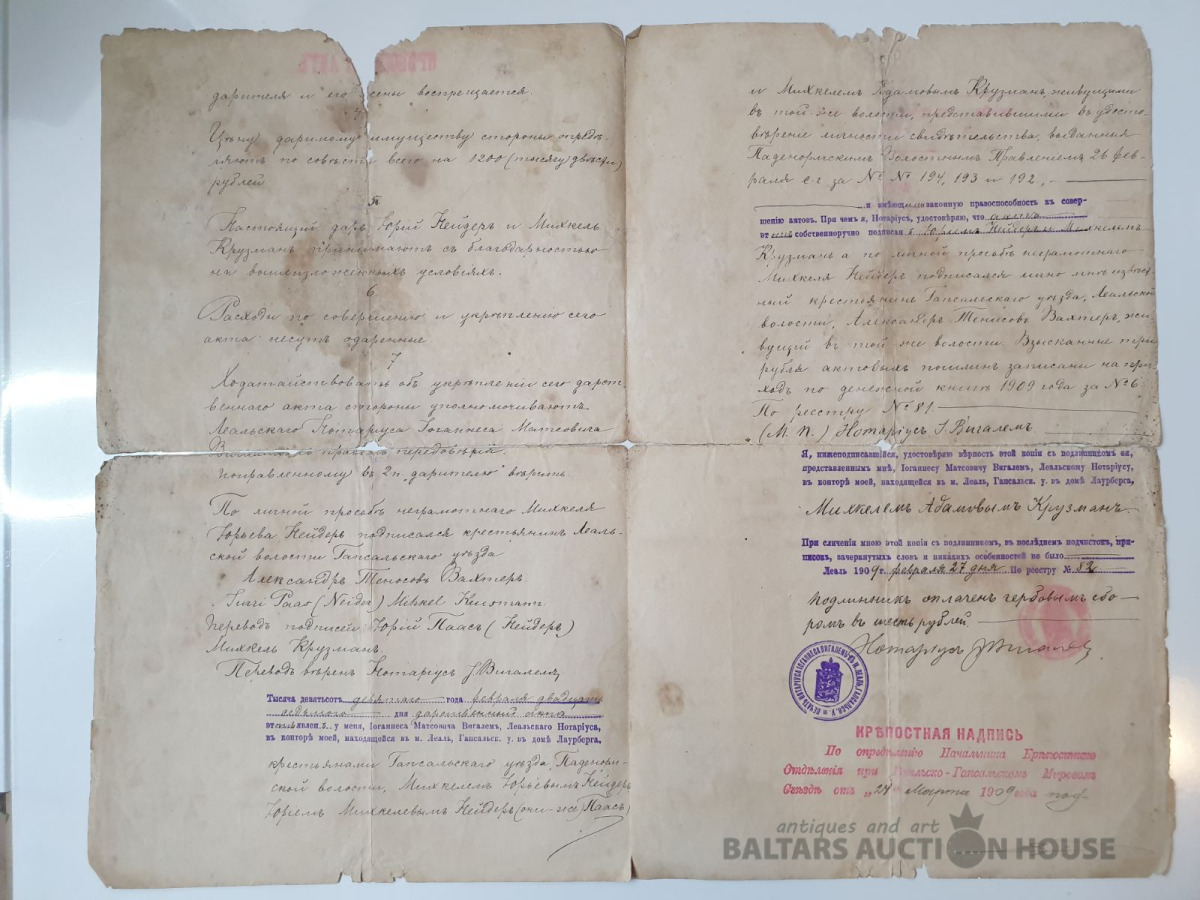 дарителя и его жены воспрещается.
Цѣну даримому имуществу стороны опредѣ-
ляютъ по совѣсти всего на 1200 (тысячу двѣсти)
рублей
Настоящій даръ Юрій Нейдеръ и Михкель
Крузманъ принимаютъ съ благодарностью
на вышеизложенныхъ условіяхъ.
6
Расходы по совершенію и укрѣпленію сего
акта несутъ одаренные
7
Ходатайствовать объ укрѣпленіи сего дарст
веннаго акта стороны уполномочиваютъ
Леальскаго Нотаріуса Іоганнеса Матсовича
передовѣрія.
Поправленному въ 2 п. "дарителю" вѣрить.
По личной просьбѣ неграмотнаго Михкеля
Юрьева Нейдеръ подписался крестьянинъ Леаль-
ской волости Гапсальскаго уѣзда
Александръ Тенисовъ Вахтеръ
Jürri Paas (Neider) Mihkel Krusmann
Переводъ подписей Юрій Паасъ (Нейдеръ)
Михкель Крузманъ.
Переводъ вѣренъ Нотаріусъ І. Вигалемъ
Тысяча девятьсотъ девятаго года февраля двадцать
седьмого дня дарственный актъ
этотъ явленъ у меня, Іоганнеса Матсовича Вигалемъ, Леальскаго Нотаріуса,
въ конторѣ моей, находящейся въ м. Леаль, Гапсальск. у. въ домѣ Лаурберга,
крестьянами Гапсальскаго уѣзда, Паденорм-
ской волости, Михкелемъ Юрьевымъ Нейдеръ
Юріемъ Михкелевымъ Нейдеръ (онъ-же Паасъ)
и Михкелемъ Адамовымъ Крузманъ, живущими
въ той-же волости, представившими въ удосто-
вѣреніе личности свидѣтельства, выданныя
Паденормскимъ Волостнымъ Правленіемъ 26 фев-
раля с.г. за №№ 194, 193 и 192,
и имѣющими законную правоспособность къ совер-
шенію актовъ. При чемъ я, Нотаріусъ, удостовѣряю, что актъ
этотъ собственноручно подписанъ Юріемъ Нейдеръ и Михкелемъ
Крузманъ а по личной просьбѣ неграмотнаго
Михкеля Нейдеръ подписался лично мнѣ извѣст-
ный крестьянинъ Гапсальскаго уѣзда, Леальской
волости, Александръ Тенисовъ Вахтеръ, жи-
вущій въ той же волости. Взысканные три
рубля актовыхъ пошлинъ записаны на при-
ходъ по денежной книгѣ 1909 года за № 6.
По реестру № 81.
(М. П.) Нотаріусъ І. Вигалемъ
Я, нижеподписавшійся, удостовѣряю вѣрность этой копіи съ подлинникомъ ея,
представленнымъ мнѣ, Іоганнесу Матсовичу Вигалемъ, Леальскому Нотаріусу,
въ конторѣ моей, находящейся въ м. Леаль, Гапсальск. у. въ домѣ Лаурберга,
Михкелемъ Адамовымъ Крузманъ.
При сличеніи мною этой копіи съ подлинникомъ, въ послѣднемъ подчистокъ, при-
писокъ, зачеркнутыхъ словъ и никакихъ особенностей не было
Леаль 1909 г. февраля 27 дня По реестру № 82
Подлинникъ оплаченъ гербовымъ сбо-
ромъ въ шесть рублей.
Нотаріусъ І. Вигалемъ
КРѢПОСТНАЯ НАДПИСЬ
По опредѣленію Начальника Крѣпостного
Отдѣленія при Ревельско-Гапсальскомъ Мировомъ
Съѣздѣ отъ "24" Марта 1909 года под
antiques and art
BALTARS AUCTION HOUSE